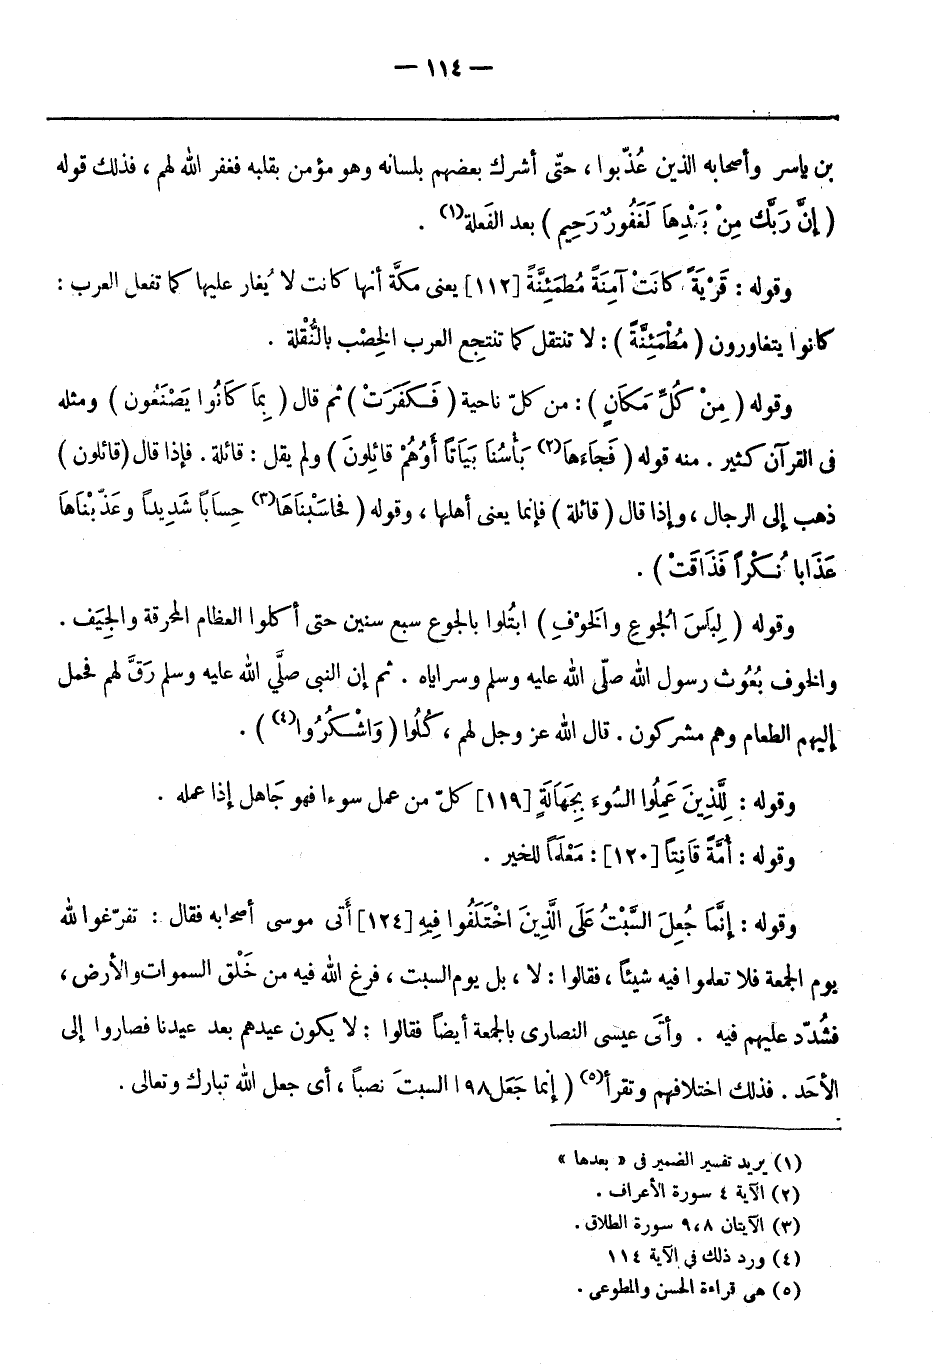 — ١١٤ —
بن ياسر وأصحابه الذين عُذّبوا ، حتّى أشرك بعضهم بلسانه وهو مؤمن بقلبه فغفر الله لهم ، فذلك قوله
( إِنَّ رَبَّكَ مِنْ بَعْدِهَا لَغَفُورٌ رَحِيم ) بعد الفَعلة(١) .
وقوله : قَرْيَةً كَانَتْ آمِنَةً مُطْمَئِنَّةً [١١٢] يعنى مكَّة أنها كانت لا يُغار عليها كما تفعل العرب :
كانوا يتغاورون ( مُطْمَئِنَّةً ) : لا تنتقل كما تنتجع العرب الخِصْب بالنُّقْلة .
وقوله ( مِنْ كُلِّ مَكَانٍ ) : من كلّ ناحية ( فَكَفَرَتْ ) ثم قال ( بِمَا كَانُوا يَصْنَعُون ) ومثله
فى القرآن كثير . منه قوله ( فَجَاءَهَا(٢) بَأْسُنَا بَيَاتاً أَوْهُمْ قائِلونَ ) ولم يقل : قائلة . فإذا قال (قائلون )
ذهب إلى الرجال ، وإذا قال ( قائلة ) فإنما يعنى أهلها ، وقوله ( فحَاسَبْنَاهَا(٣) حِسَاباً شَدِيداً وعَذّبْنَاهَا
عَذَابا نُكْراً فَذَاقَتْ ) .
وقوله ( لِبَاَسَ الْجوعِ والَخوْفِ ) ابتُلوا بالجوع سبع سنين حتى أكلوا العظام المحرقة والجِيَف .
والخوف بُعُوث رسول الله صلّى الله عليه وسلم وسراياه . ثم إن النبى صلَّي الله عليه وسلم رَقَّ لهم فحمل
إليهم الطعام وهم مشركون . قال الله عز وجل لهم ، كُلُوا ( وَاشْكُرُوا(٤) ) .
وقوله : لِلَّذِينَ عَمِلُوا السُوءَ بِجَهَالَةٍ [١١٩] كلّ من عمل سوءا فهو جَاهل إذا عمله .
وقوله : أُمَّةً قَانِتاً [١٢٠] : مَعْلَماً للخير .
وقوله : إِنَّمَا جُعِلَ السَّبْتُ عَلَى الَّذِينَ اخْتَلَفُوا فِيهِ [١٢٤] أَتى موسى أصحابه فقال : تفرّغوا لله
يوم الجمعة فلا تعلموا فيه شيئاً ، فقالوا : لا ، بل يوم السبت ، فرغ الله فيه من خَلْق السموات والأرض ،
فشُدّد عليهم فيه . وأتَى عيسى النصارى بالجمعة أيضاً فقالوا : لا يكون عيدهم بعد عيدنا فصاروا إلى
الأحَد . فذلك اختلافهم وتقرأ(٥) ( إنما جَعَل ٩٨ ا السبتَ نصباً ، أى جعل الله تبارك وتعالى .
(١) يريد تفسير الضمير فى « بعدها »
(٢) الآية ٤ سورة الأعراف .
(٣) الآيتان ٨ ، ٩ سورة الطلاق .
(٤) ورد ذلك فى الآية ١١٤
(٥) هى قراءة الحسن والمطوعى .